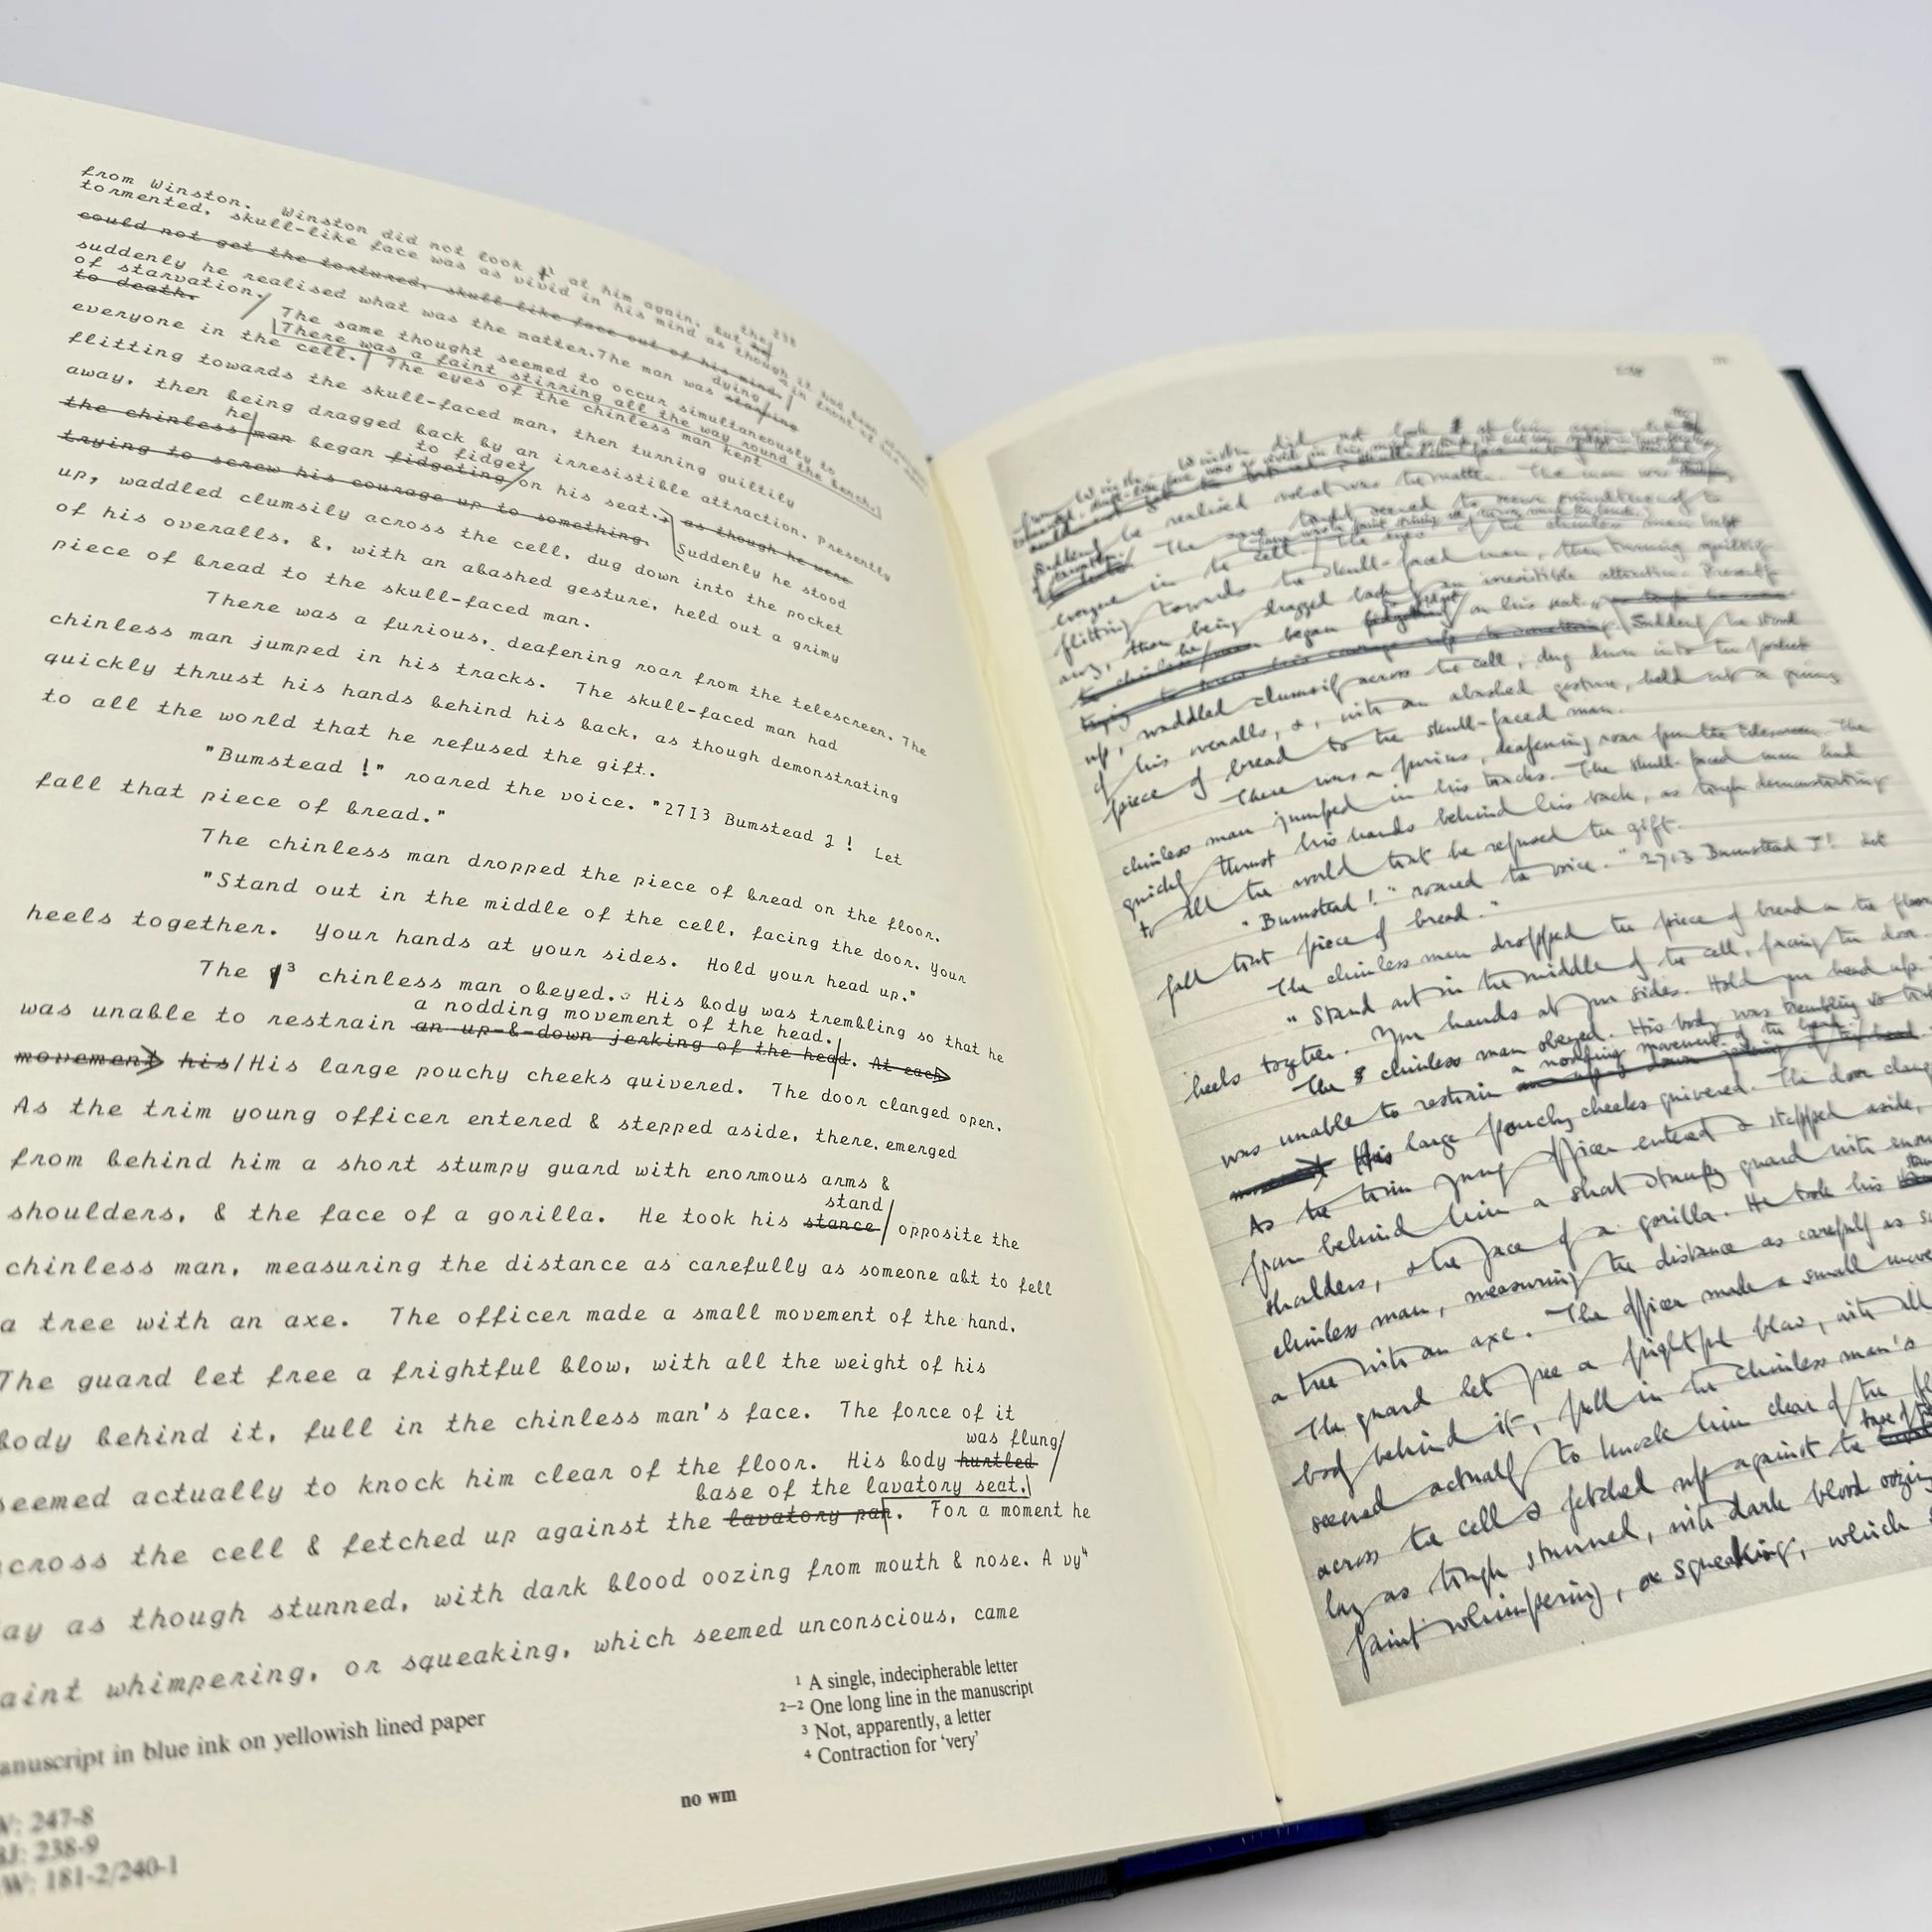 238
from Winston. Winston did not look at him again, but the he
tormented, skull-like face was as vivid in his mind as though it had been
could not get the tortured, skull-like face out of his mind.
suddenly he realised what was the matter. The man was starving
dying
of starvation.
to death.
The same thought seemed to occur simultaneously to
There was a faint stirring all the way round the bench.
everyone in the cell. The eyes of the chinless man kept
flitting towards the skull-faced man, then turning guiltily
away, then being dragged back by an irresistible attraction. Presently
he
the chinless man began fidgeting on his seat., as though he were
to fidget
trying to screw his courage up to something. Suddenly he stood
up, waddled clumsily across the cell, dug down into the pocket
of his overalls, &, with an abashed gesture, held out a grimy
piece of bread to the skull-faced man.
There was a furious, deafening roar from the telescreen. The
chinless man jumped in his tracks. The skull-faced man had
quickly thrust his hands behind his back, as though demonstrating
to all the world that he refused the gift.
"Bumstead !" roared the voice. "2713 Bumstead J ! Let
fall that piece of bread."
The chinless man dropped the piece of bread on the floor.
"Stand out in the middle of the cell, facing the door. Your
heels together. Your hands at your sides. Hold your head up."
The ³ chinless man obeyed. His body was trembling so that he
a nodding movement of the head.
was unable to restrain an up-&-down jerking of the head. At each
movement his/His large pouchy cheeks quivered. The door clanged open.
As the trim young officer entered & stepped aside, there emerged
from behind him a short stumpy guard with enormous arms &
stand
shoulders, & the face of a gorilla. He took his stance opposite the
chinless man, measuring the distance as carefully as someone abt to fell
a tree with an axe. The officer made a small movement of the hand.
The guard let free a frightful blow, with all the weight of his
body behind it, full in the chinless man's face. The force of it
was flung
seemed actually to knock him clear of the floor. His body hurtled
base of the lavatory seat.
across the cell & fetched up against the lavatory pan. For a moment he
lay as though stunned, with dark blood oozing from mouth & nose. A vy⁴
aint whimpering, or squeaking, which seemed unconscious, came
¹ A single, indecipherable letter
²⁻² One long line in the manuscript
³ Not, apparently, a letter
⁴ Contraction for 'very'
anuscript in blue ink on yellowish lined paper
no wm
W: 247-8
BJ: 238-9
W: 181-2/240-1
Winston did not look at him again
suddenly he realised what was the matter. The man was
The same thought seemed to occur simultaneously to
everyone in the cell. The eyes of the chinless man kept
flitting towards the skull-faced man, then turning guiltily
away, then being dragged back by an irresistible attraction. Presently
the chinless man began fidgeting on his seat., as though he were
trying to screw his courage up to something. Suddenly he stood
up, waddled clumsily across the cell, dug down into the pocket
of his overalls, &, with an abashed gesture, held out a grimy
piece of bread to the skull-faced man.
There was a furious, deafening roar from the telescreen. The
chinless man jumped in his tracks. The skull-faced man had
quickly thrust his hands behind his back, as though demonstrating
to all the world that he refused the gift.
"Bumstead !" roared the voice. "2713 Bumstead J! Let
fall that piece of bread."
The chinless man dropped the piece of bread on the floor
"Stand out in the middle of the cell, facing the door.
heels together. Your hands at your sides. Hold your head up."
The chinless man obeyed. His body was trembling so that
a nodding movement of the head
was unable to restrain an up-&-down jerking of the head.
movement His large pouchy cheeks quivered. The door clang
As the trim young officer entered & stepped aside,
from behind him a short stumpy guard with enor
shoulders, & the face of a gorilla. He took his
chinless man, measuring the distance as carefully as s
a tree with an axe. The officer made a small move
The guard let free a frightful blow, with all
body behind it, full in the chinless man's
seemed actually to knock him clear of the fl
base of the
across the cell & fetched up against the
lay as though stunned, with dark blood oozing
faint whimpering, or squeaking, which s